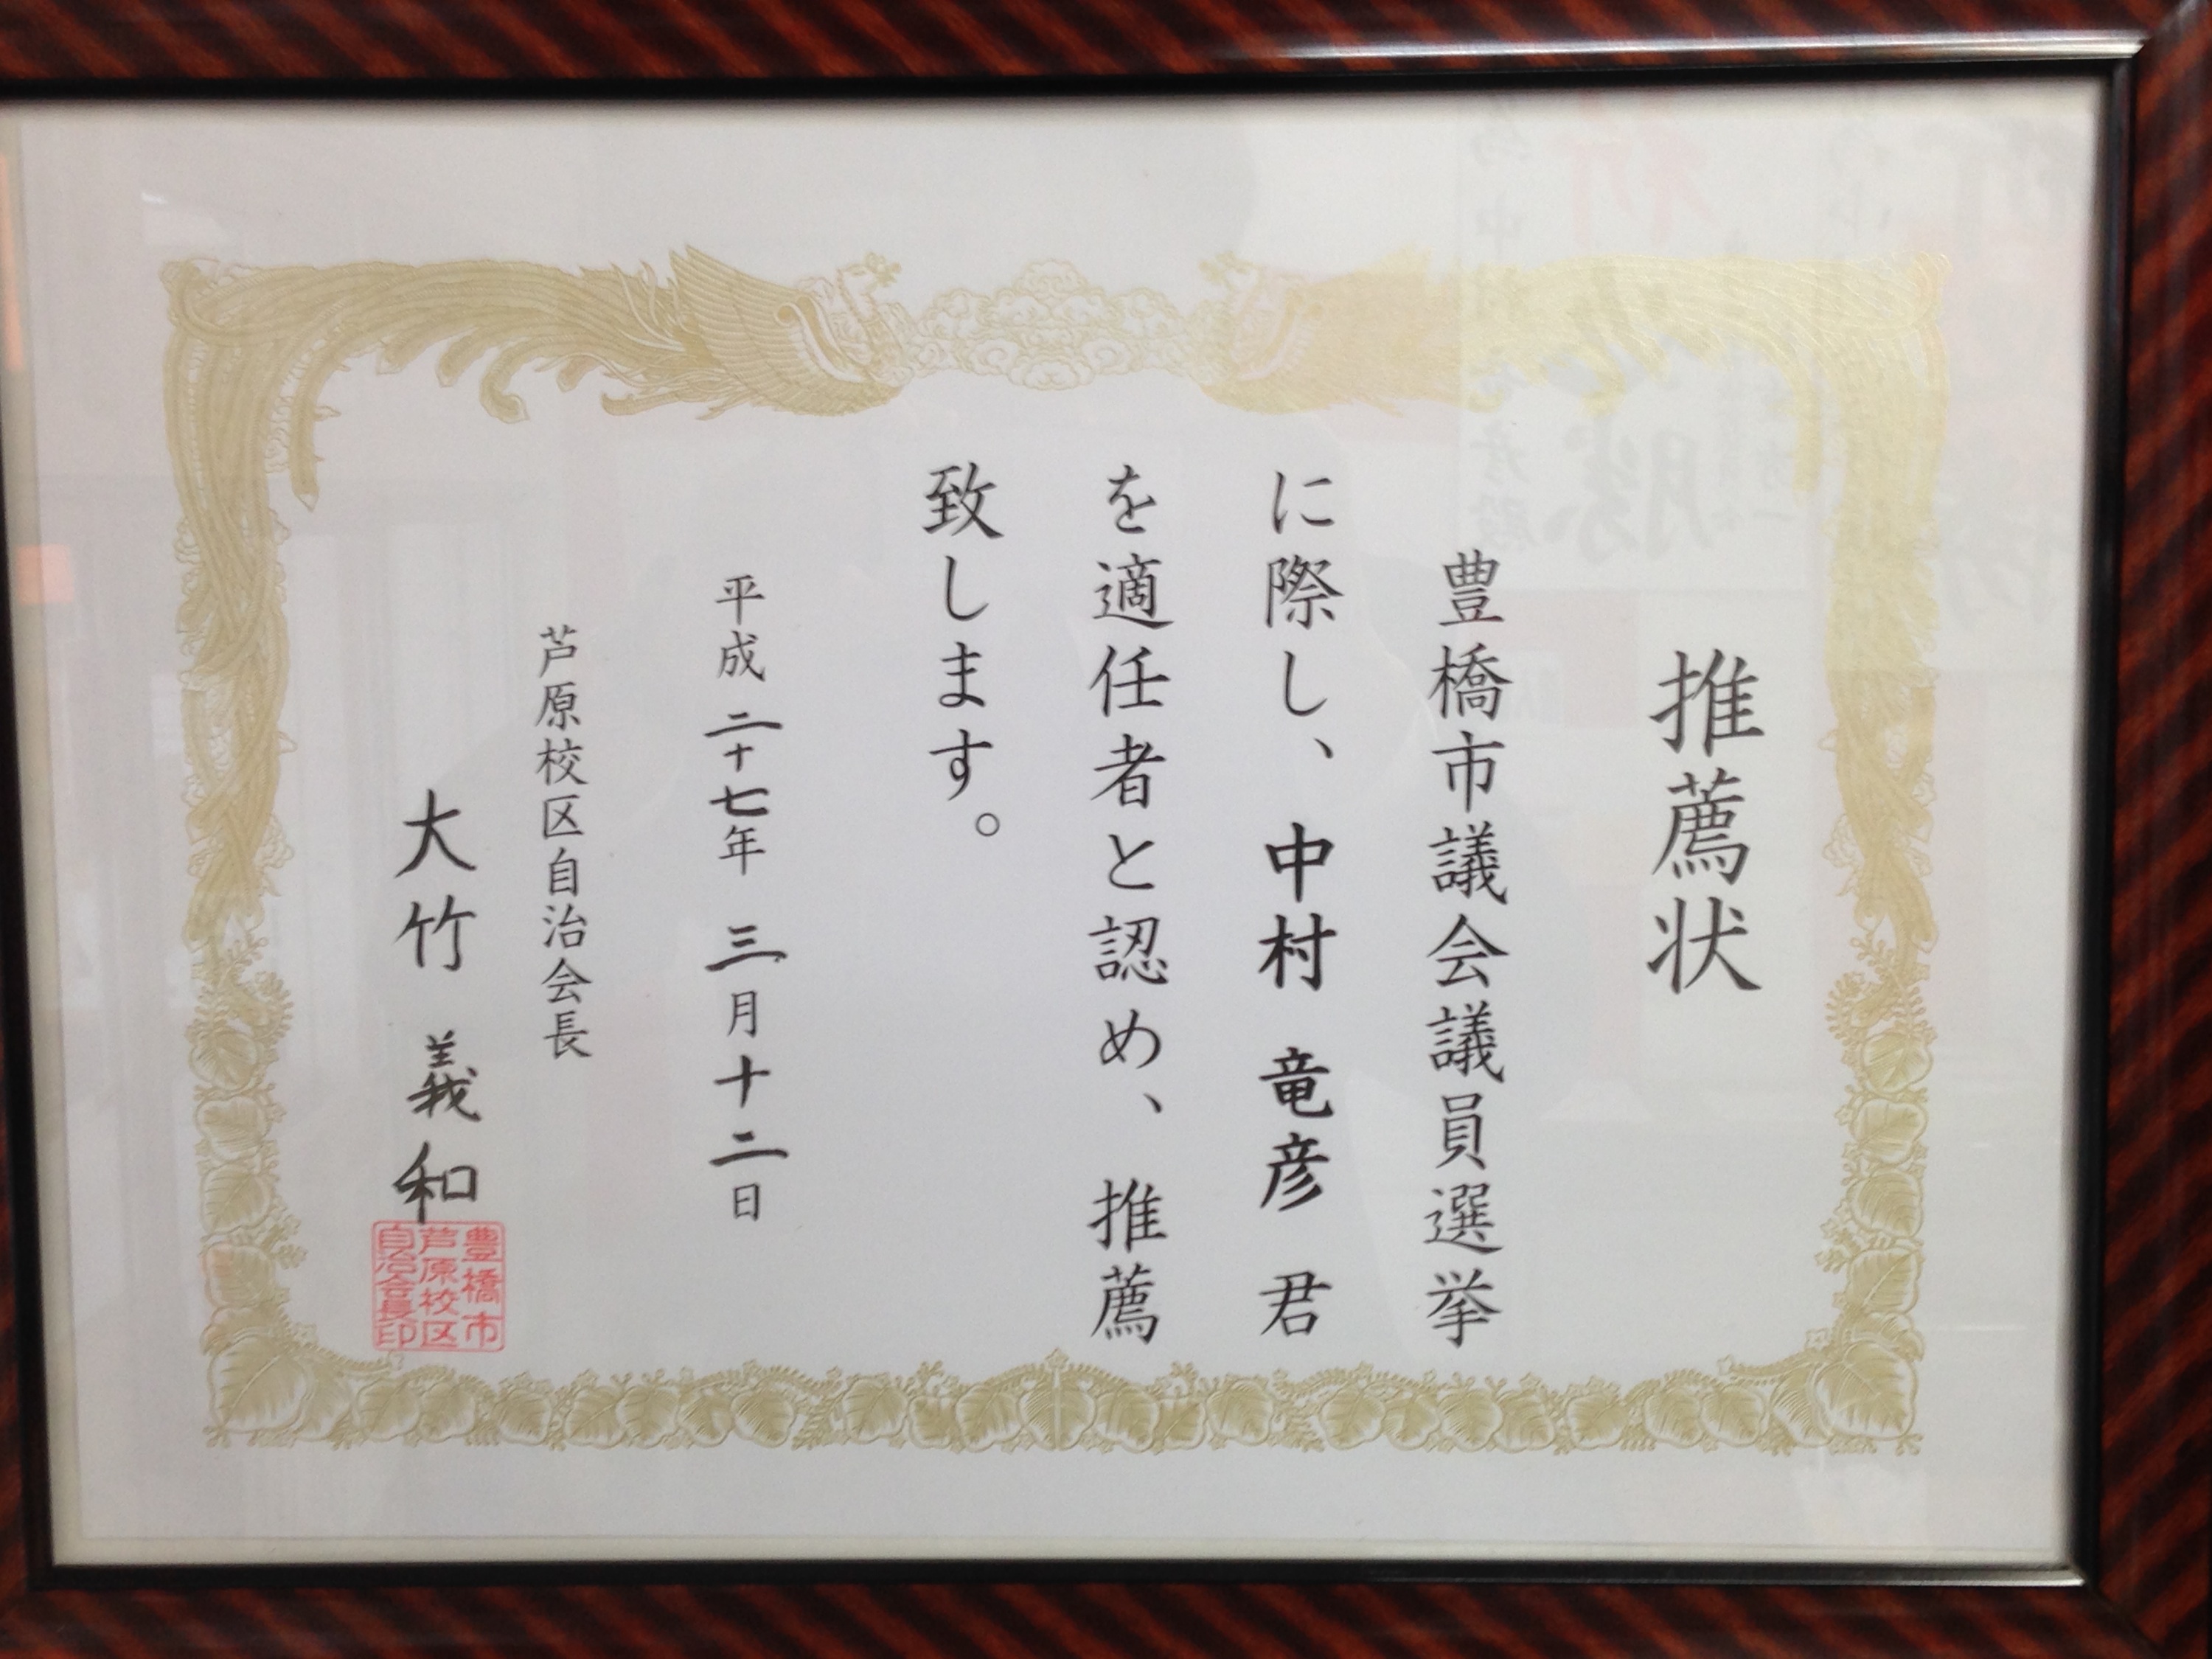 推薦状
豊橋市議会議員選挙
に際し、中村 竜彦 君
を適任者と認め、推薦
致します。
平成二十七年 三月十二日
芦原校区自治会長
大竹 義和
豊橋市
芦原校区
自治会長印